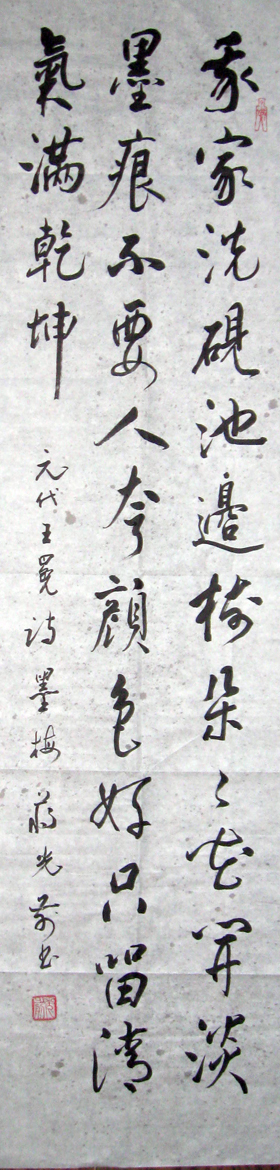 我家洗硯池邊樹朵〻花開淡
墨痕不要人夸顏色好只留清
氣滿乾坤
元代王冕詩墨梅 蔣光前书